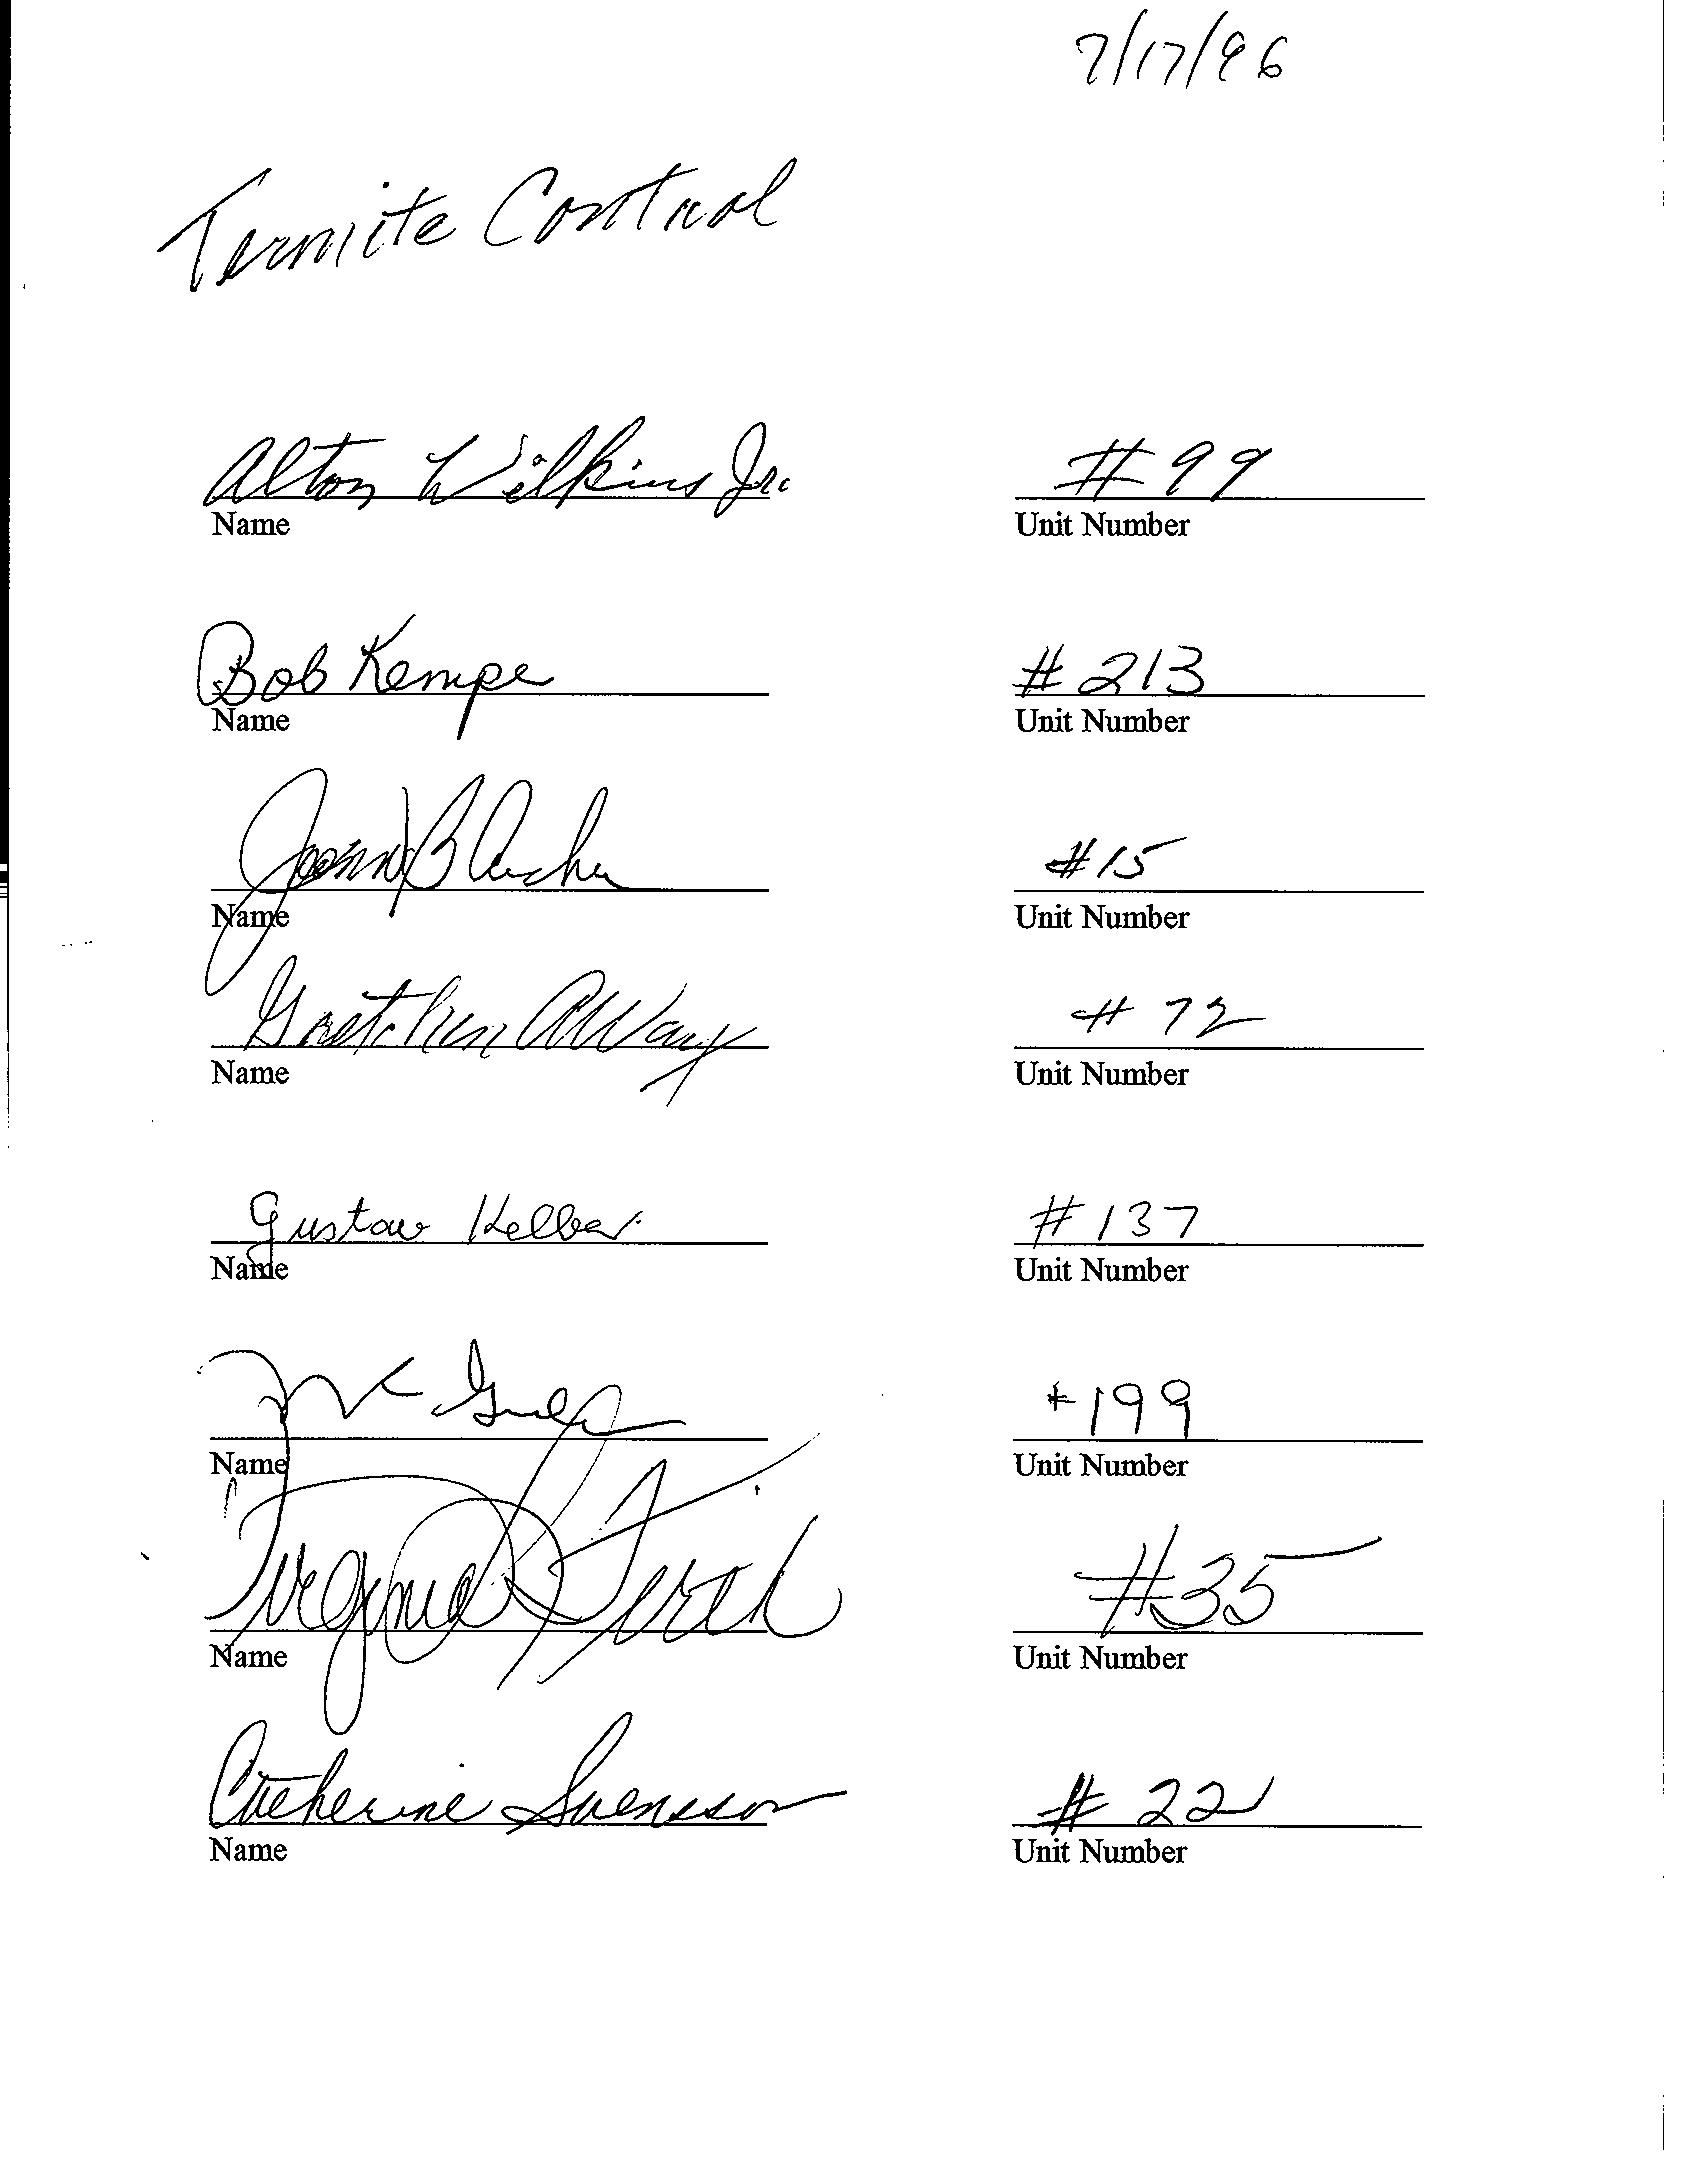 7/17/96
Termite Control
Alton Wilkins Jr. #99
Name Unit Number
Bob Kempe #213
Name Unit Number
B #15
Name Unit Number
Gretchen A Way #72
Name Unit Number
Gustav Kelber #137
Name Unit Number
#199
Name Unit Number
Virginia #35
Name Unit Number
Catherine Svensson #22
Name Unit Number